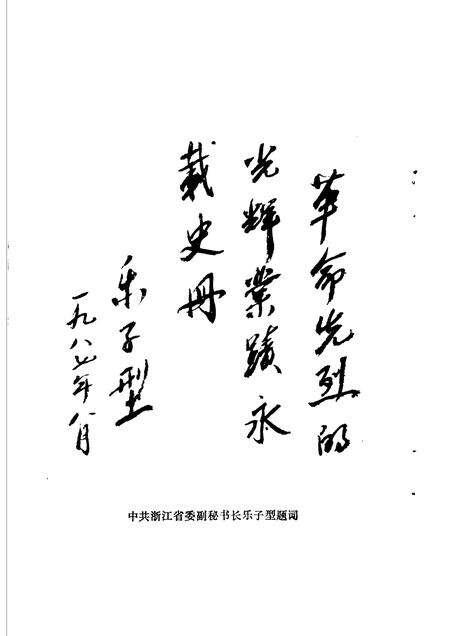 革命先烈的
光辉業蹟永
载史冊
乐子型
一九八七年八月
中共浙江省委副秘书长乐子型题词